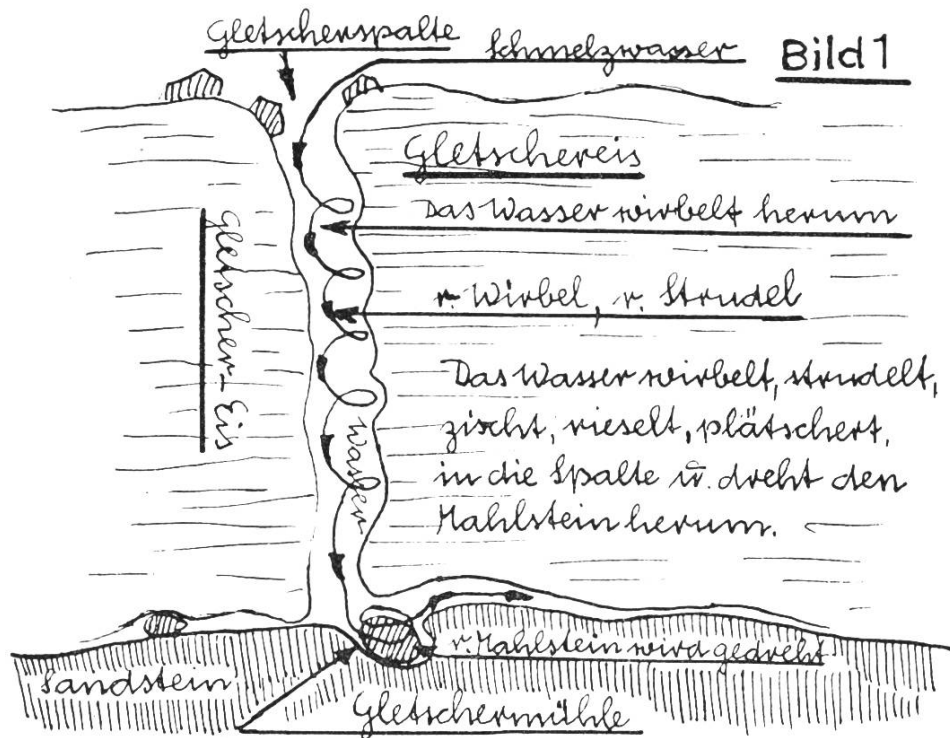 Gletscherspalte
Schmelzwasser
Bild 1
Gletschereis
Das Wasser wirbelt herum
r. Wirbel, r. Strudel
Gletscher-Eis
Das Wasser wirbelt, strudelt,
zischt, rieselt, plätschert,
in die Spalte u. dreht den
Mahlstein herum.
Wasser
r. Mahlstein wird gedreht
Sandstein
Gletschermühle